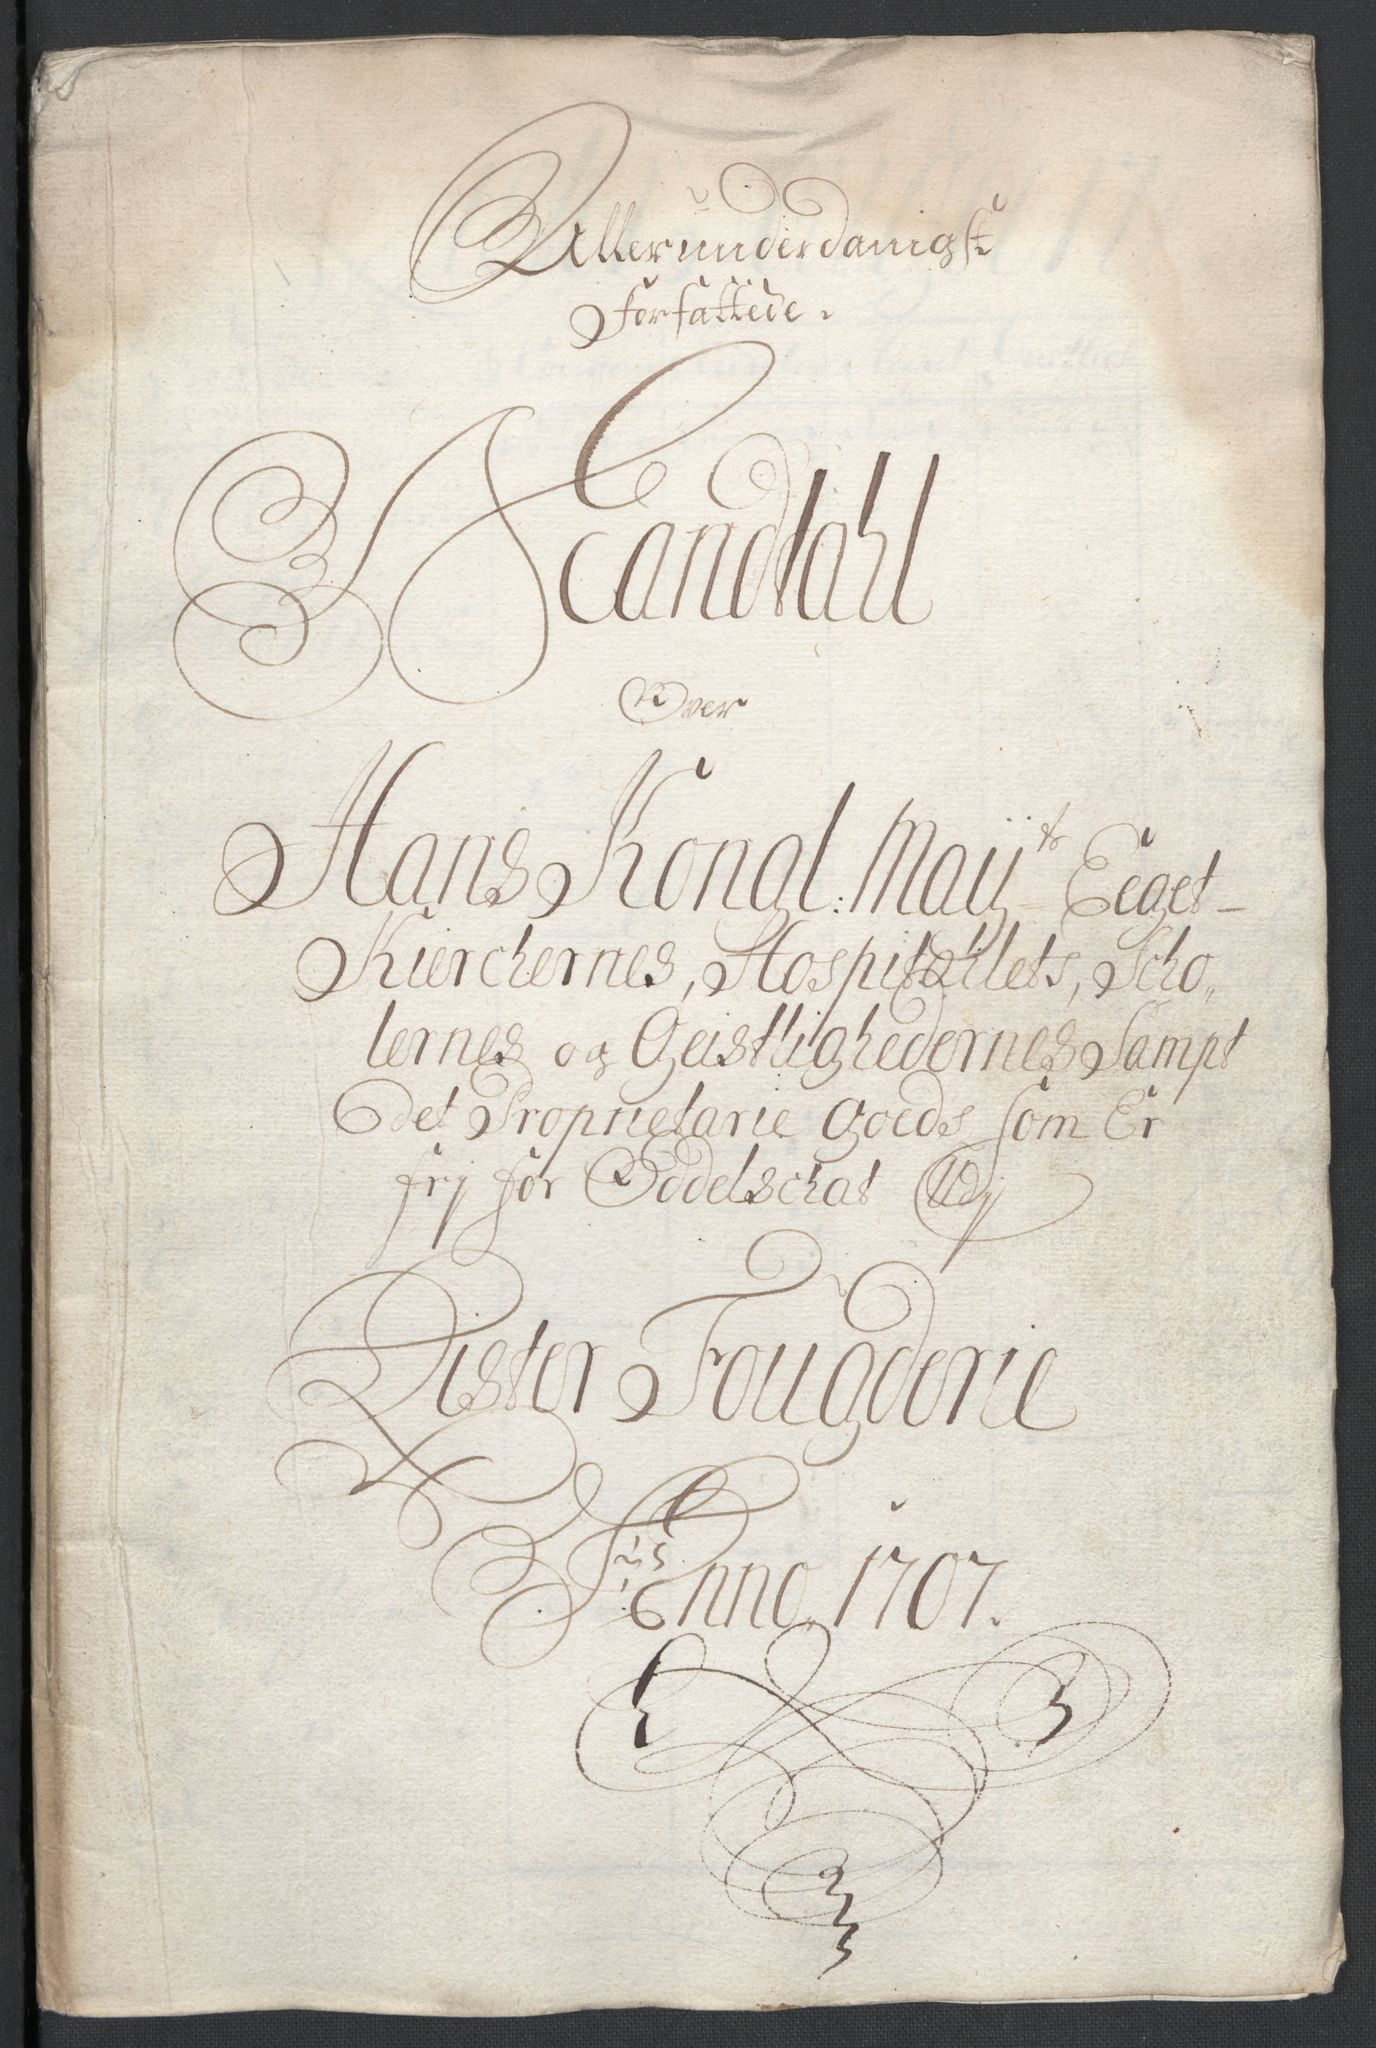 Allerunderdanigst
forfattede.
Mandtahl
Over
Hans Kongl: Maÿts Eeget
Kierchernes, Hospitahlets, Scho„
lernes og Geistlighedernes Sampt
det Proprietarie goeds som Er
frj for Oddelschat Udj
Lister Fougderie
Anno 1707.